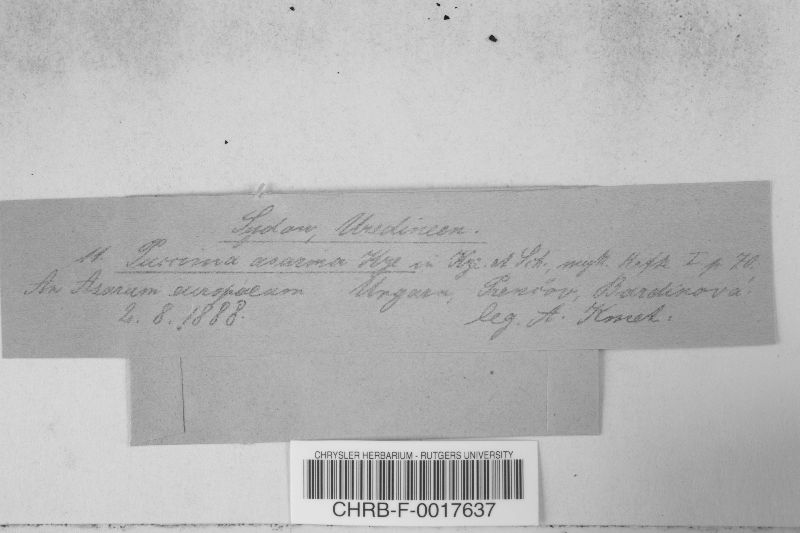 Sydow, Uredineen.
11. Puccinia asarina Kze in Kze. et Sch., myk. Heft. I p. 70.
An Asarum europaeum Ungarn, Prenčov, Bardinová.
2. 8. 1888. leg. A. Kmet.
CHRYSLER HERBARIUM - RUTGERS UNIVERSITY
CHRB-F-0017637